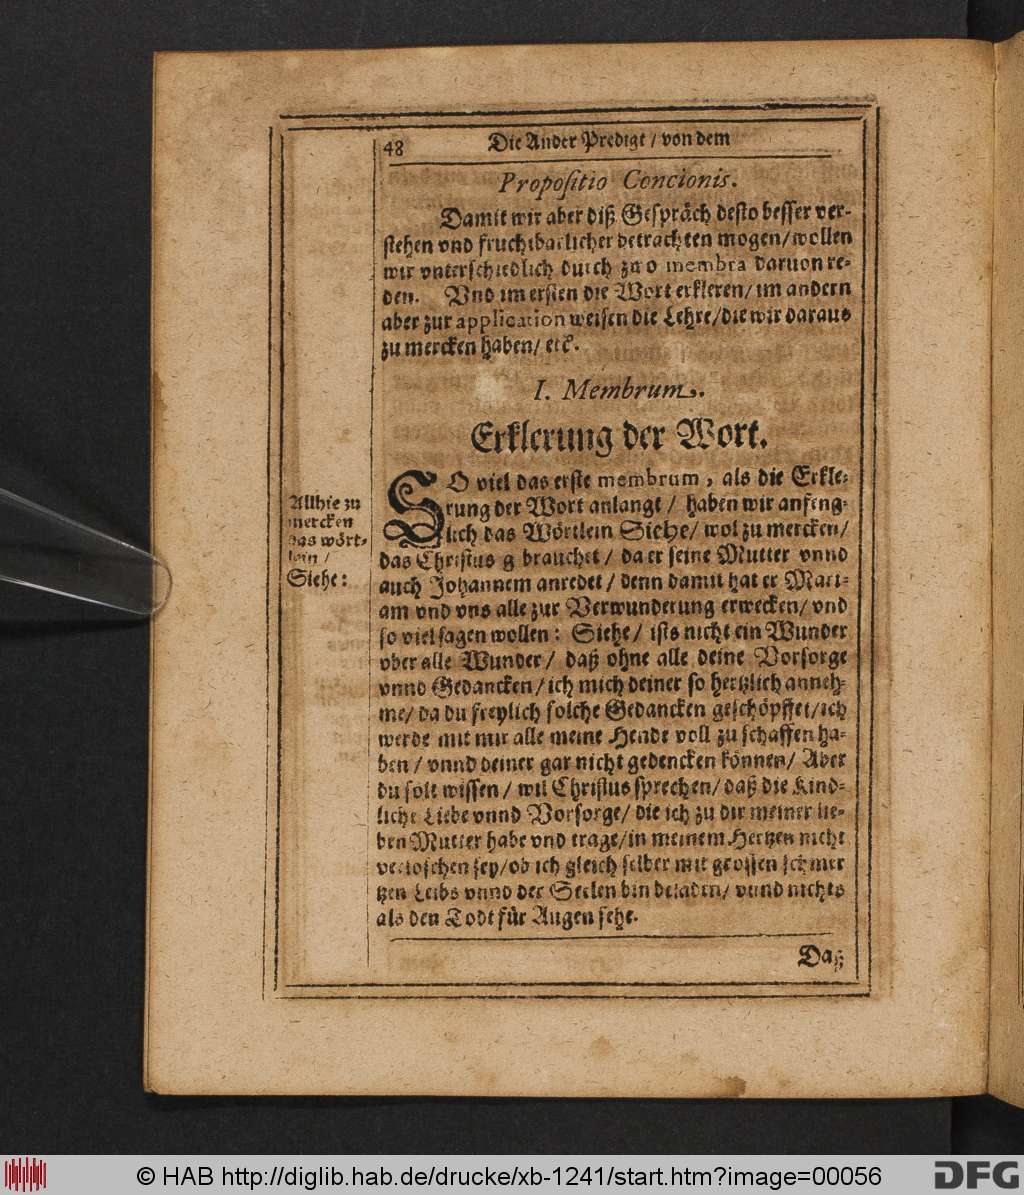 48 Die Ander Predigt / von dem
Propositio Concionis.
Damit wir aber diß Gespräch desto besser ver-
stehen vnd fruchtbarlicher betrachten mogen/wollen
wir vnterschiedlich durch zwo membra daruon re-
den. Vnd im ersten die Wort erkleren/ im andern
aber zur application weisen die Lehre/die wir daraus
zu mercken haben/ etc.
I. Membrum.
Erklerung der Wort.
SO viel das erste membrum, als die Erkle-
rung der Wort anlangt / haben wir anfeng-
lich das Wörtlein Siehe/ wol zu mercken/
das Christus gebrauchet/ da er seine Mutter vnnd
auch Johannem anredet/ denn damit hat er Mari-
am vnd vns alle zur Verwunderung erwecken/ vnd
so viel sagen wollen: Siehe/ ists nicht ein Wunder
vber alle Wunder/ daß ohne alle deine Vorsorge
vnnd Gedancken/ ich mich deiner so hertzlich anneh-
me/ da du freylich solche Gedancken geschöpffet/ich
werde mit mir alle meine Hende voll zu schaffen ha-
ben / vnnd deiner gar nicht gedencken können/ Aber
du solt wissen / wil Christus sprechen/ daß die Kind-
liche Liebe vnnd Vorsorge/ die ich zu dir meiner lie-
ben Mutter habe vnd trage/in meinem Hertzen nicht
verloschen sey/ob ich gleich selber mit grossen schmer
tzen Leibs vnnd der Seelen bin beladen/ vnnd nichts
als den Todt für Augen sehe.
Daß
Allhie zu
mercken
das wört-
lein /
Siehe:
© HAB http://diglib.hab.de/drucke/xb-1241/start.htm?image=00056
DFG